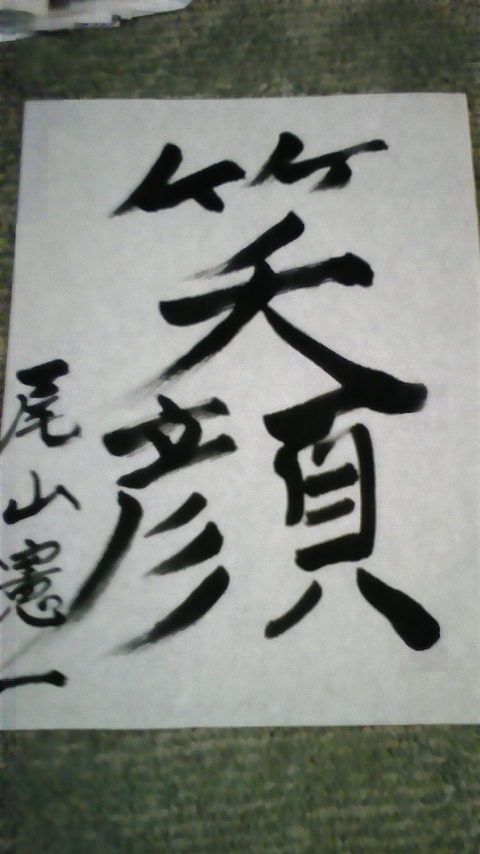 笑顔
尾山憲一